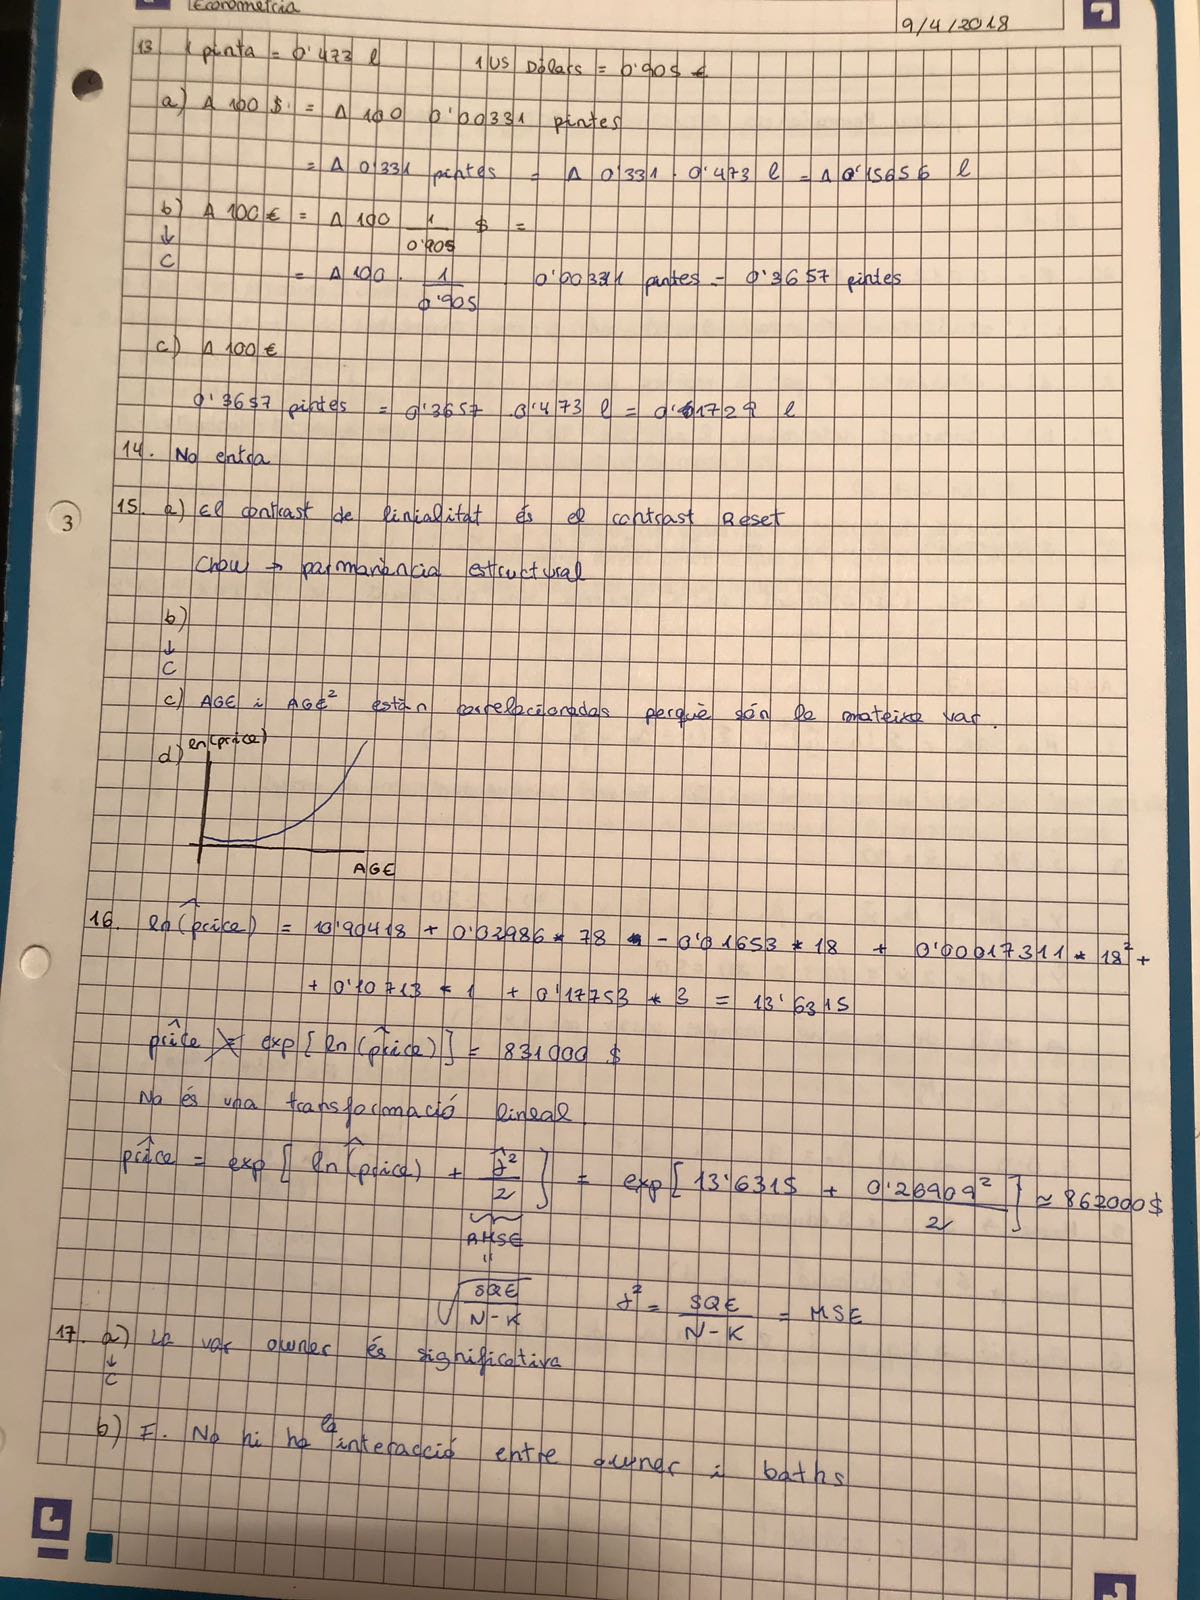 Econometria
9/4/2018
13 1 pinta = 0'473 l 1 US Dòlars = 0'905 €
a) Δ 100 $ = Δ 100 0'00331 pintes
= Δ 0'331 pintes = Δ 0'331 · 0'473 l = Δ 0'15656 l
b) Δ 100 € = Δ 100 1/0'905 $ =
↓
C
= Δ 100 · 1/0'905 0'00331 pintes = 0'3657 pintes
c) Δ 100 €
0'3657 pintes = 0'3657 · 0'473 l = 0'1729 l
14. No entra
3
15. a) El contrast de linialitat és el contrast Reset
Chow → parmanència estructural
b)
↓
C
c) AGE i AGE² están correlacionadas perquè són la mateixa var.
d) ln(price)
AGE
16. ln(price)^ = 10'90418 + 0'02986 * 78 - 0'01653 * 18 + 0'00017311 * 18² +
+ 0'10713 * 1 + 0'17753 * 3 = 13'6315
price^ ≠ exp[ln(price)^] = 831000 $
No és una transformació lineal
price^ = exp[ln(price)^ + σ^²/2] = exp[13'6315 + 0'26909²/2] ≈ 862000 $
RMSE
"
√SQE/N-K σ² = SQE/N-K = MSE
17. a) La var owner és significativa
↓
C
b) F. No hi ha la interacció entre owner i baths